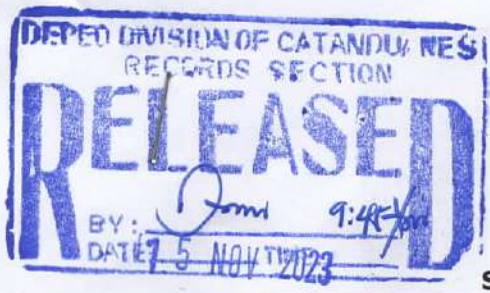 DEPED DIVISION OF CATANDUANES
RECORDS SECTION
RELEASED
BY:
DATE 15 NOV 2023 TIME
S